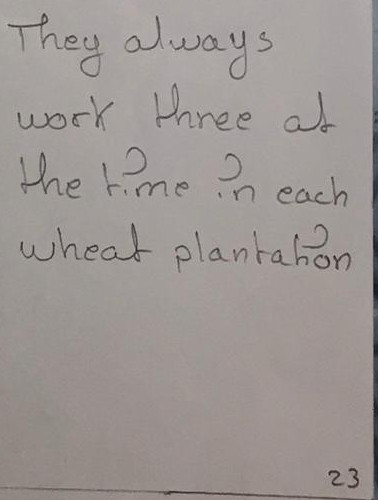 They always
work three at
the time in each
wheat plantation
23